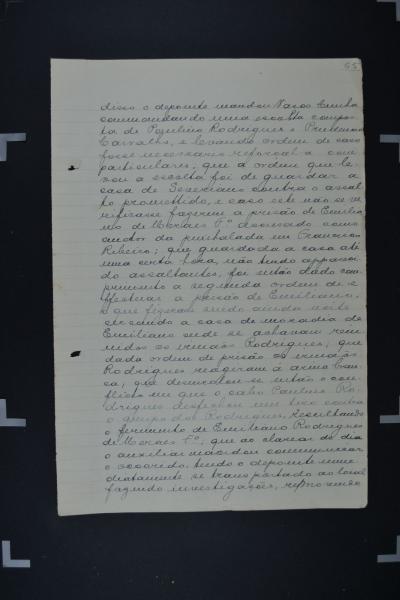 55
disso o depoente mandou Vasco Cunha
commandando uma escolta compos-
ta de Paulino Rodrigues e Prudencio
Carvalho, e levando ordem de caso
fosse necessario reforçal-a com
particulares; que a ordem que le-
vou a escolta foi de guardar a
casa de contra o assal-
to promettido, e caso este não se ve-
rificasse fazerem a prisão de Emilia-
no de Moraes Fº accusado como
auctor da punhalada em Francisco
Ribeiro; que guardada a casa até
uma certa hora, não tendo appareci-
do assaltantes, foi então dado cum-
primento a segunda ordem de e
ffectuar a prisão de Emiliano,
o que fizeram sendo ainda noite
cercando a casa de moradia de
Emiliano onde se achavam reu-
nidos os irmãos Rodrigues; que
dada ordem de prisão os irmãos
Rodrigues reagiram a arma bran-
ca; que desenrolou-se então o con-
flicto em que o cabo Paulino Ro-
drigues desfechou um tiro contra
o grupo dos Rodrigues, resultando
o ferimento de Emiliano Rodrigues
de Moraes Fº, que ao clarear do dia
o auxiliar mandou communicar
o occorrido, tendo o depoente imme-
diatamente se transportado ao local
fazendo investigações,